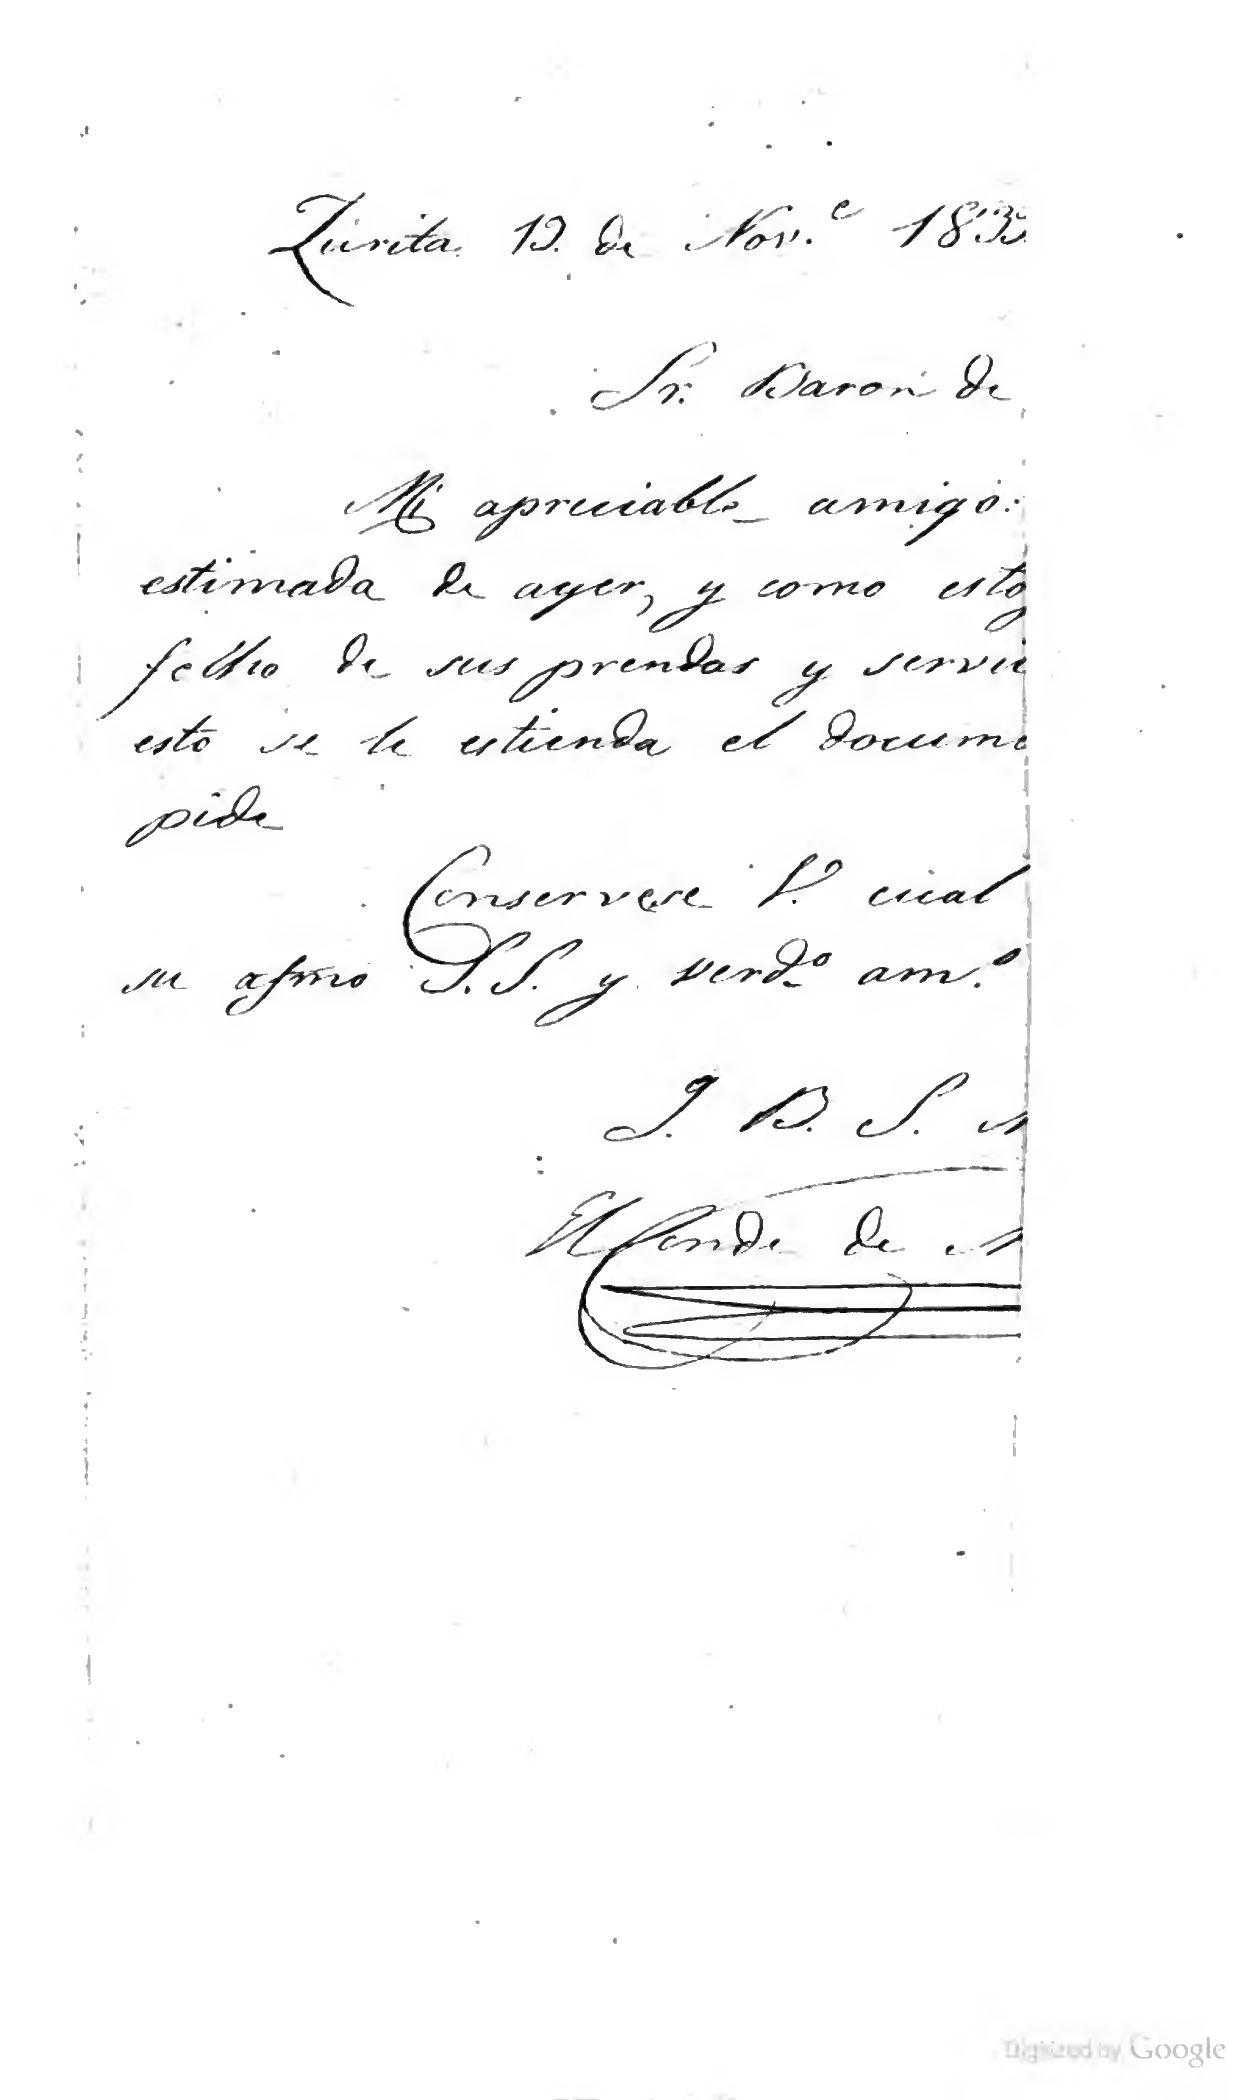 Zurita 19. de Nov.e 183
Sr. Baron de
Mi apreciable amigo:
estimada de ayer, y como estoy
fecho de sus prendas y servi
esto se le estienda el docume
pide
Conservese V. cual
su afmo S.S. y verd.o am.o
Q. B. S. M
El Conde de
Digitized by Google